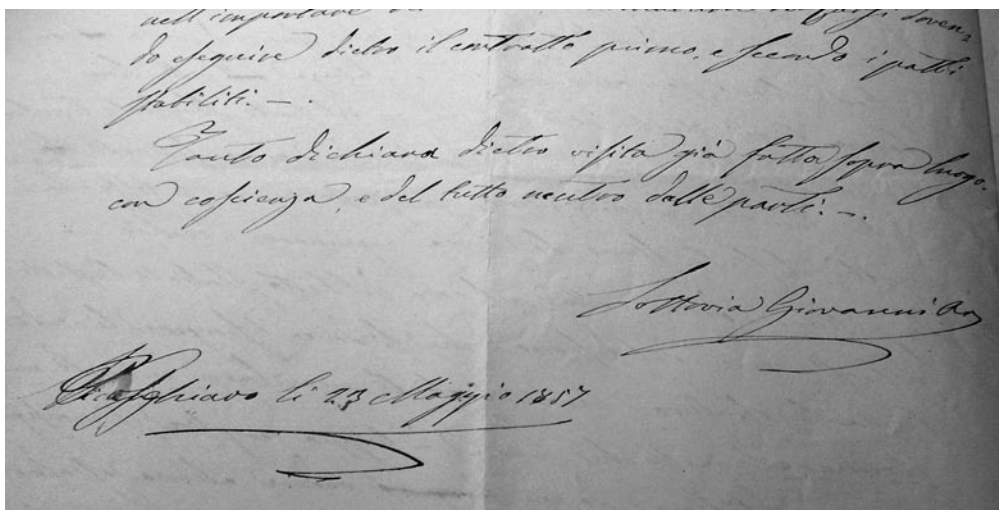 nell'importare
do eseguire dietro il contratto primo, e secondo i patti
stabiliti. —.
Tanto dichiara dietro visita già fatta sopra luogo.
con coscienza, e del tutto neutro dalle parti. —.
Giovanni
li 23 Maggio 1857